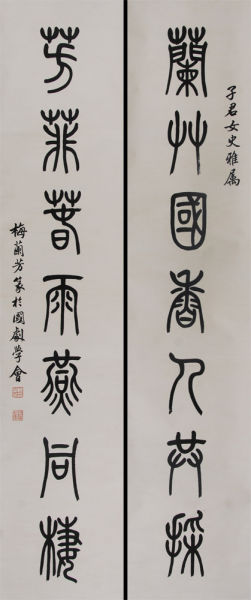 子君女史雅属
蘭艸國香人共採
芳菲春雨燕同棲
梅蘭芳篆於國劇學會